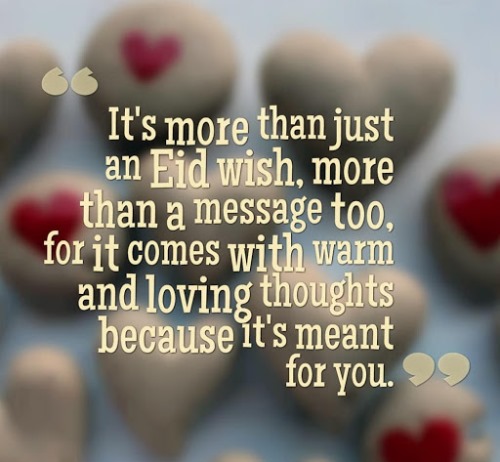 “
It's more than just
an Eid wish, more
than a message too,
for it comes with warm
and loving thoughts
because it's meant
for you. ”